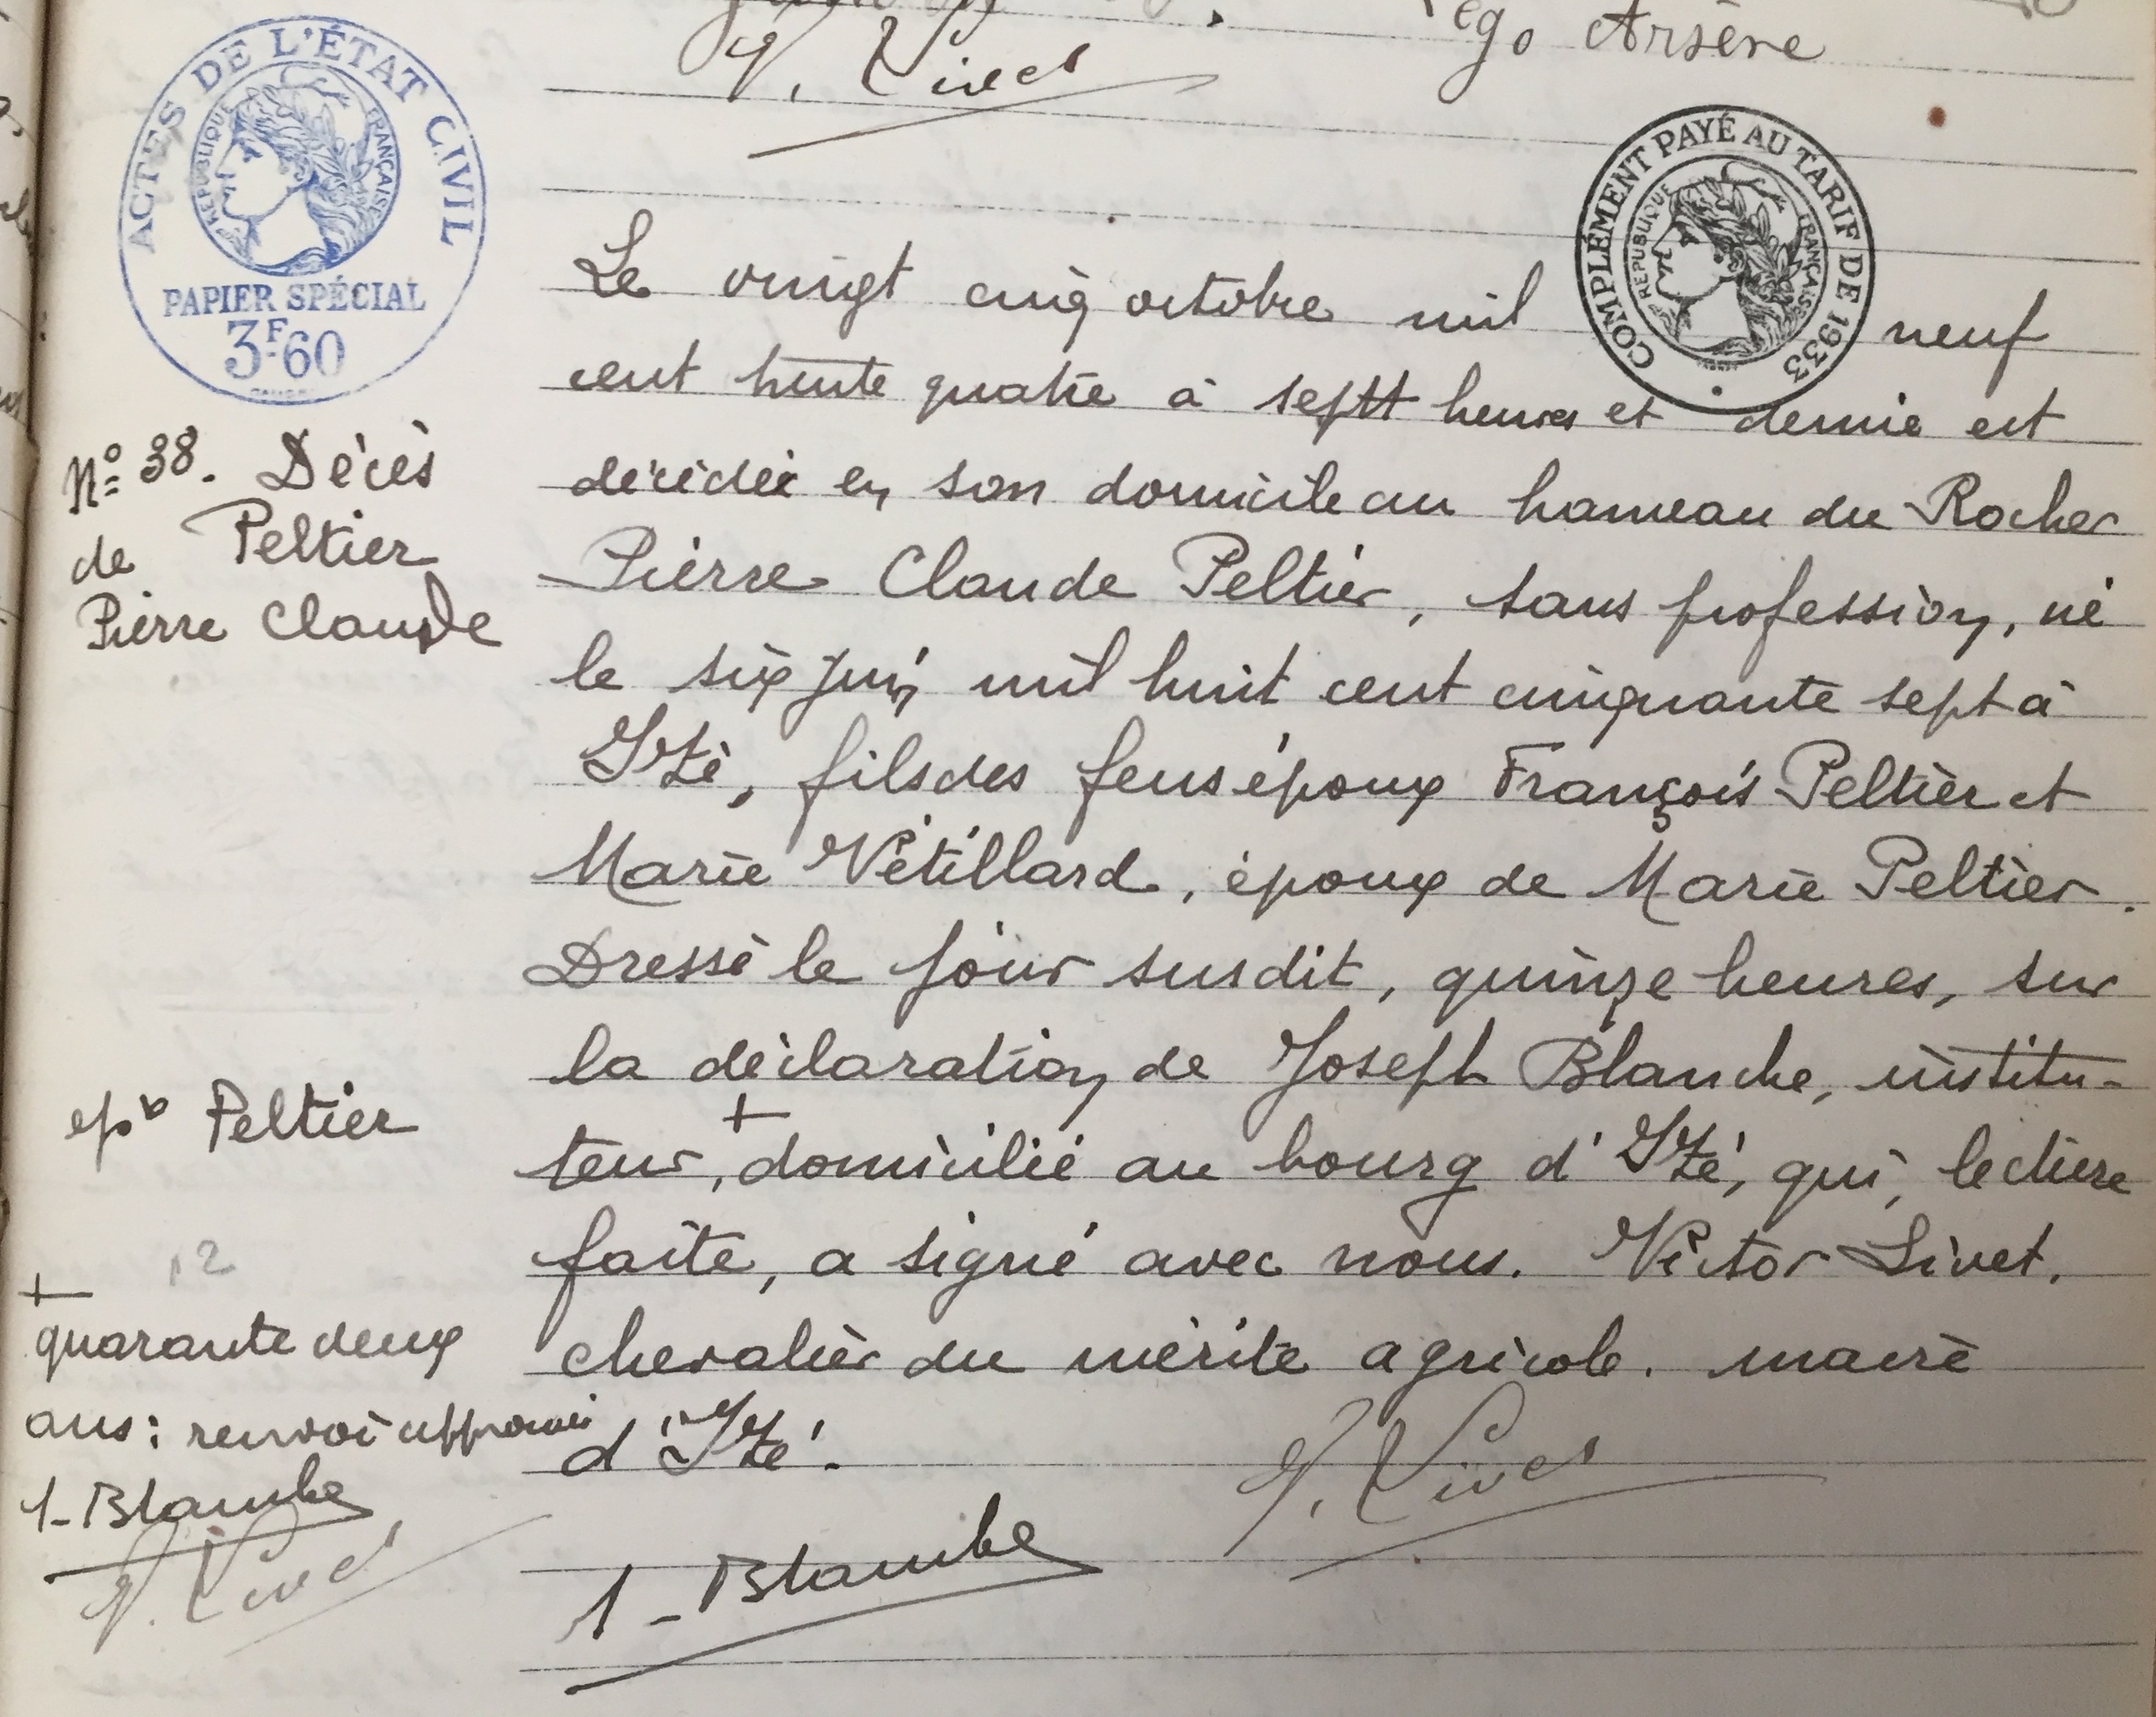 V. Livet
ego Arsène
ACTES DE L'ÉTAT CIVIL
RÉPUBLIQUE FRANÇAISE
PAPIER SPÉCIAL
3F60
COMPLÉMENT PAYÉ AU TARIF DE 1933
RÉPUBLIQUE FRANÇAISE
N° 38. Décès
de Peltier
Pierre Claude
epx Peltier
12
+
quarante deux
ans : renvoi approuvé
J. Blanche
V. Livet
Le vingt cinq octobre mil neuf
cent trente quatre à septt heures et demie est
décédée en son domicile au hameau du Rocher
Pierre Claude Peltier, sans profession, né
le six juin mil huit cent cinquante sept à
Izé, fils des feus époux François Peltier et
Marie Vétillard, époux de Marie Peltier.
Dressé le jour susdit, quinze heures, sur
la déclaration de Joseph Blanche, institu-
teur, + domicilié au bourg d'Izé, qui, lecture
faite, a signé avec nous. Victor Livet.
chevalier du mérite agricole. maire
d'Izé.
V. Livet
J. Blanche